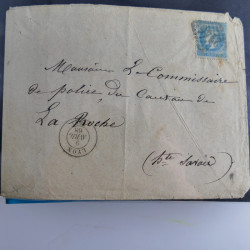 Monsieur Le Commissaire
de police du Canton de
La Roche
(hte Savoie)
LYON